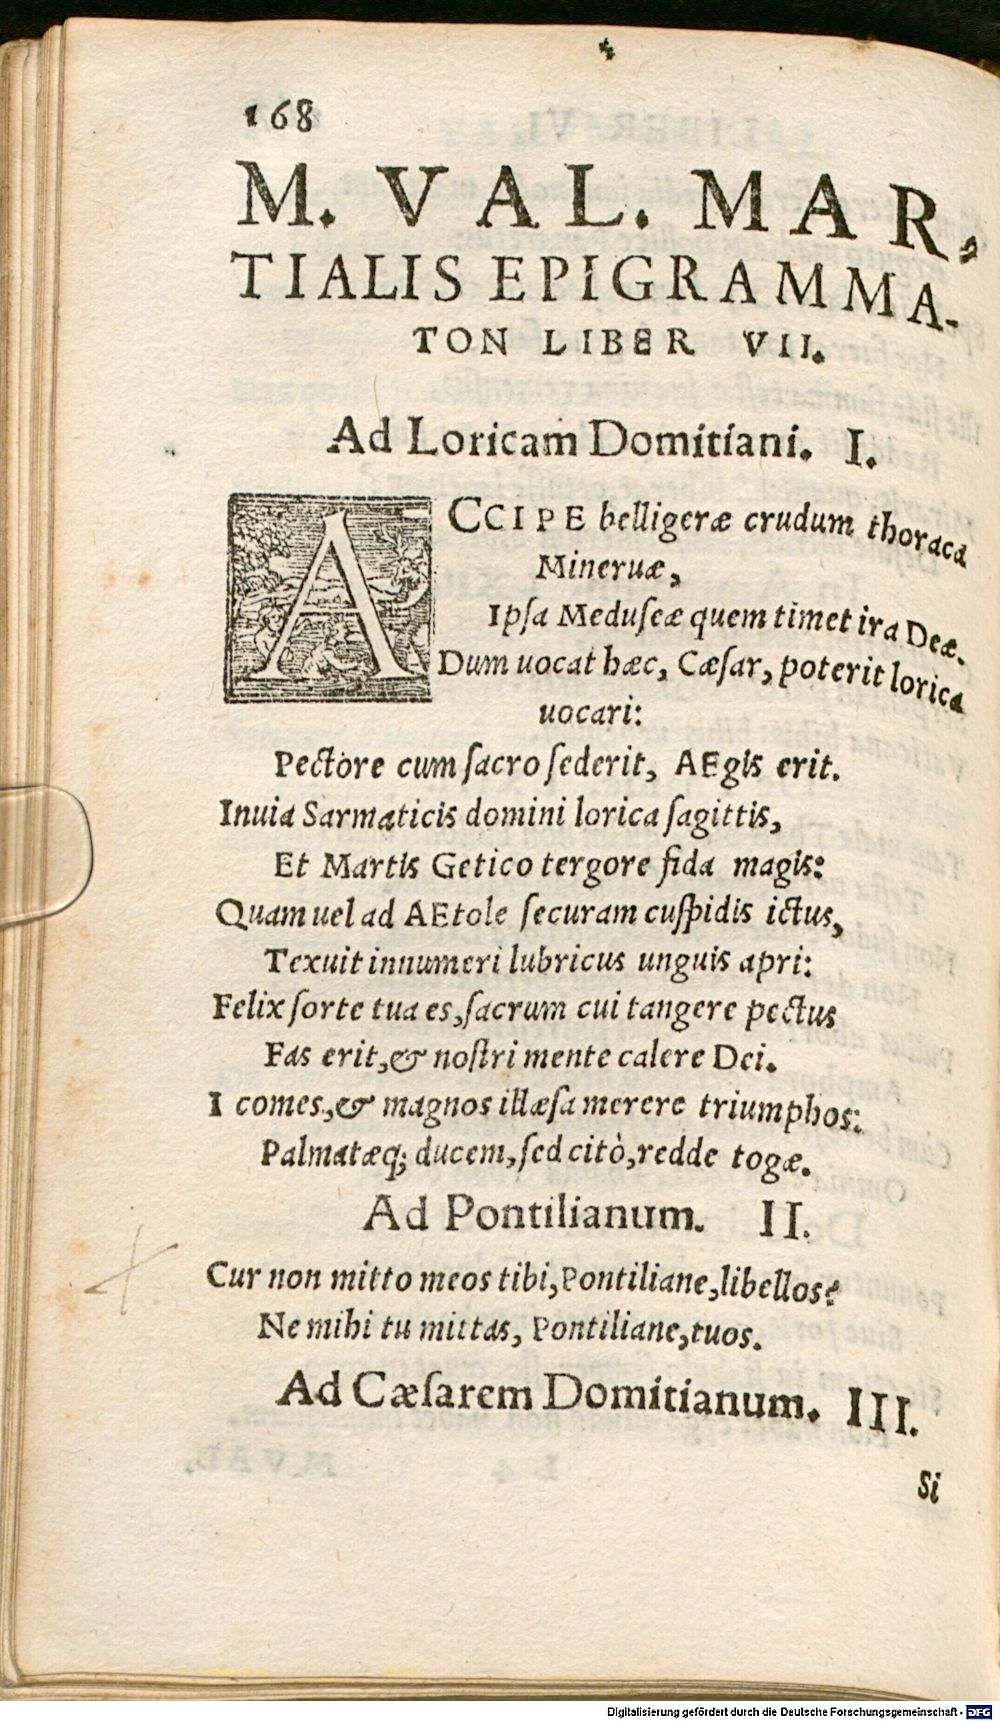 168
M. VAL. MAR-
TIALIS EPIGRAMMA-
TON LIBER VII.
Ad Loricam Domitiani. I.
ACCIPE belligeræ crudum thoraca
Mineruæ,
Ipſa Meduſeæ quem timet ira Deæ.
Dum uocat hæc, Cæſar, poterit lorica
uocari:
Pectore cum ſacro ſederit, AEgis erit.
Inuia Sarmaticis domini lorica ſagittis,
Et Martis Getico tergore fida magis:
Quam uel ad AEtole ſecuram cuſpidis ictus,
Texuit innumeri lubricus unguis apri:
Felix ſorte tua es, ſacrum cui tangere pectus
Fas erit, & noſtri mente calere Dei.
I comes, & magnos illæſa merere triumphos:
Palmatæq; ducem, ſed citò, redde togæ.
Ad Pontilianum. II.
Cur non mitto meos tibi, Pontiliane, libellos?
Ne mihi tu mittas, Pontiliane, tuos.
Ad Cæſarem Domitianum. III.
Si
Digitalisierung gefördert durch die Deutsche Forschungsgemeinschaft - DFG